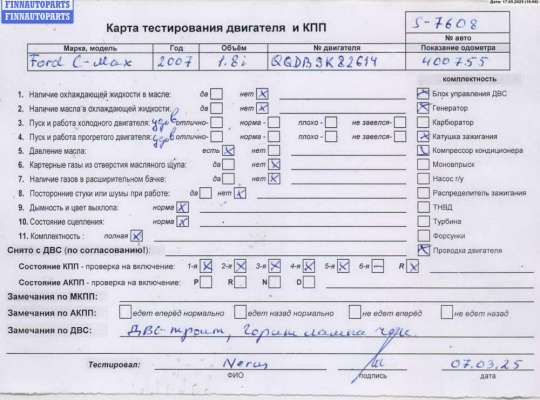 FINNAUTOPARTS
FINNAUTOPARTS
Карта тестирования двигателя и КПП
S-7608
№ авто
Марка, модель Год Объём № двигателя Показание одометра
Ford C-Max 2007 1.8i QQDB9K82614 400755
комплектность
1. Наличие охлаждающей жидкости в масле: да нет x
2. Наличие масла в охлаждающей жидкости: да нет x
3. Пуск и работа холодного двигателя: удов отлично- норма - плохо - не завелся-
4. Пуск и работа прогретого двигателя: удов отлично- норма - плохо - не завелся-
5. Давление масла: есть x нет
6. Картерные газы из отверстия масляного щупа: да нет x
7. Наличие газов в расширительном бачке: да нет x
8. Посторонние стуки или шумы при работе: да нет x
9. Дымность и цвет выхлопа: норма x
10. Состояние сцепления: норма x
11. Комплектность : полная x
x Блок управления ДВС
x Генератор
Карбюратор
x Катушка зажигания
x Компрессор кондиционера
Моновпрыск
Насос г/у
Распределитель зажигания
ТНВД
Турбина
Форсунки
x Проводка двигателя
Снято с ДВС (по согласованию!):
Состояние КПП - проверка на включение: 1-я x 2-я x 3-я x 4-я x 5-я x 6-я — R x
Состояние АКПП - проверка на включение: P R N D
Замечания по МКПП:
Замечания по АКПП: едет вперёд нормально едет назад нормально не едет вперёд не едет назад
Замечания по ДВС: ДВС-троит, Горит лампа
Тестировал: 07.03.25
ФИО подпись дата